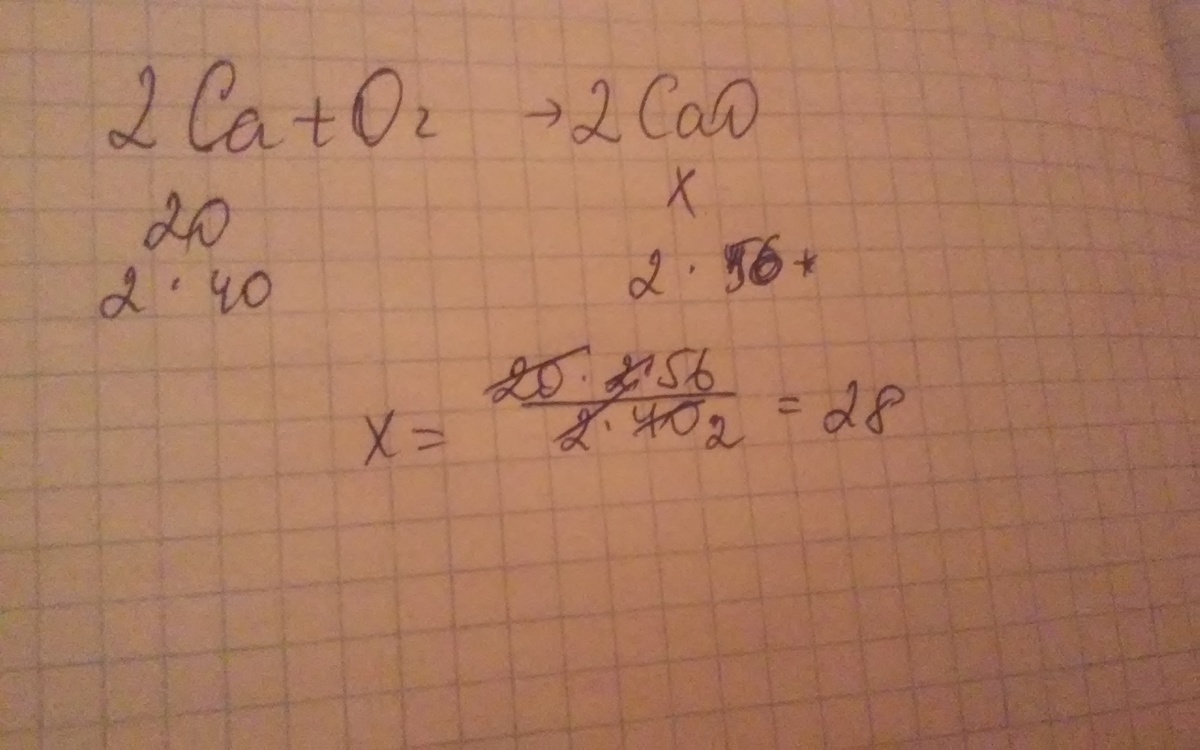 2Ca + O2 → 2CaO
20 x
2 · 40 2 · 56
x = 20 · 2 · 56 / 2 · 40 2 = 28